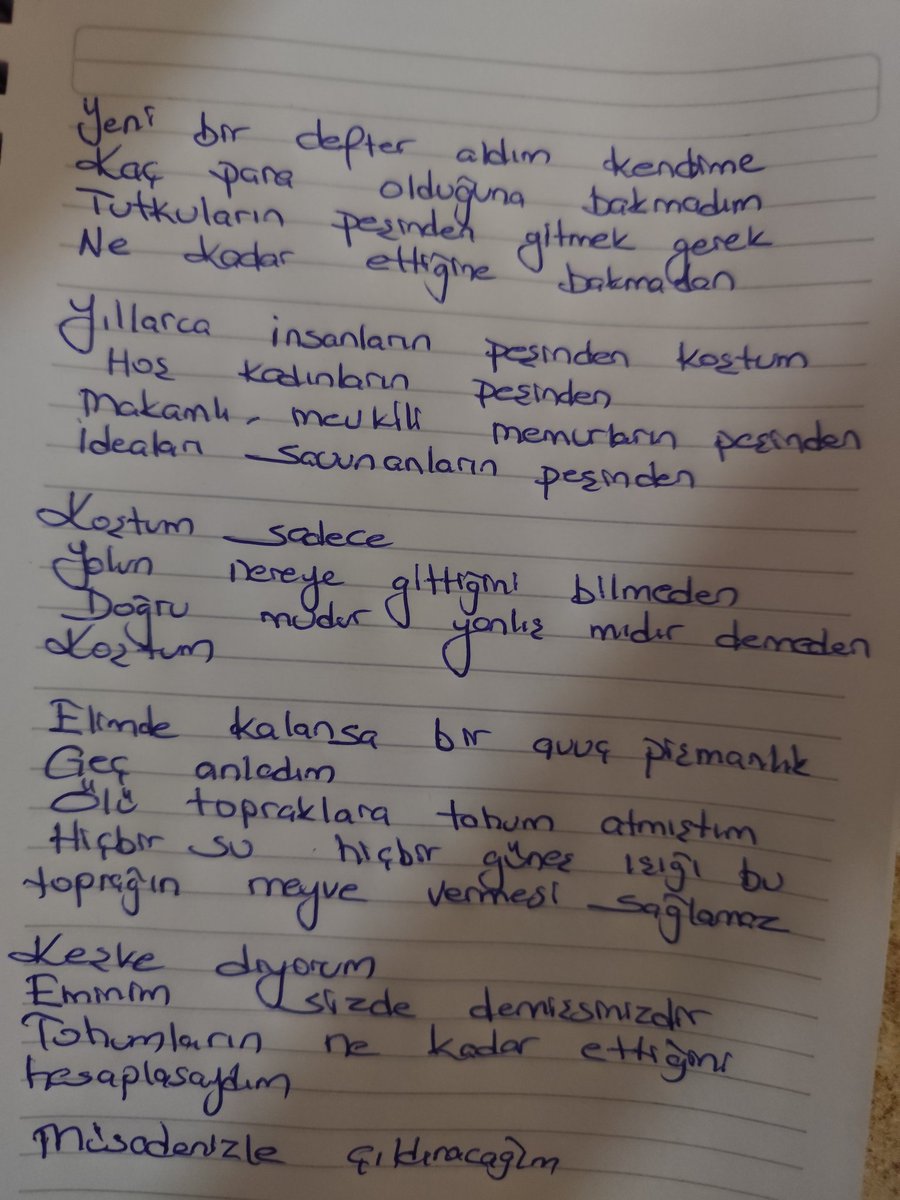 Yeni bir defter aldım kendime
Kaç para olduğuna bakmadım
Tutkuların peşinden gitmek gerek
Ne kadar ettiğine bakmadan
Yıllarca insanların peşinden koştum
Hoş kadınların peşinden
Makamlı, mevkili memurların peşinden
İdealari savunanların peşinden
Koştum sadece
Yolun nereye gittiğini bilmeden
Doğru mudur yanlış mıdır demeden
Koştum
Elimde kalansa bir avuç pişmanlık
Geç anladım
Ölü topraklara tohum atmıştım
Hiçbir su hiçbir güneş ışığı bu
toprağın meyve vermesi sağlamaz
Keşke diyorum
Eminim sizde demişsinizdir
Tohumların ne kadar ettiğini
hesaplasaydım
Müsadenizle çıldıracağım